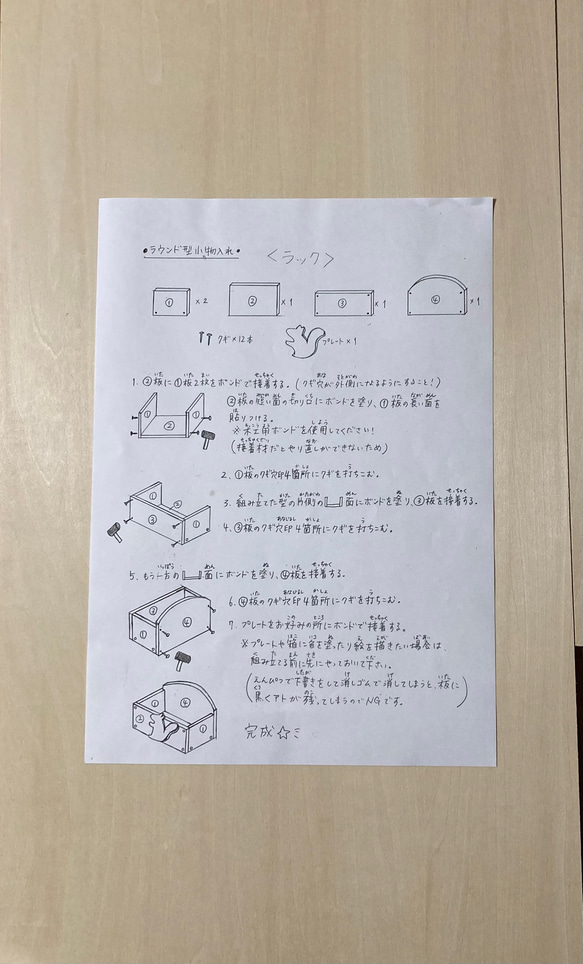 •ラウンド型小物入れ•
<ラック>
① ×2 ② ×1 ③ ×1 ④ ×1
クギ×12本 プレート×1
1. ②板に①板2枚をボンドで接着する。(クギ穴が外側になるようにすること!)
②板の短い面の切り口にボンドを塗り、①板の長い面を
貼りつける。
※木工用ボンドを使用してください!
(接着材だとやり直しができないため)
2. ①板のクギ穴印4箇所にクギを打ちこむ。
3. 組み立てた型の片側の 面にボンドを塗り、③板を接着する。
4. ③板のクギ穴印4箇所にクギを打ちこむ。
5. もう一方の 面にボンドを塗り、④板を接着する。
6. ④板のクギ穴印4箇所にクギを打ちこむ。
7. プレートをお好みの所にボンドで接着する。
※プレートや箱に色を塗ったり絵を描きたい場合は、
組み立てる前に先にやっておいて下さい。
(えんぴつで下書きをして消しゴムで消してしまうと、板に
黒くアトが残ってしまうのでNGです。)
完成☆ミ